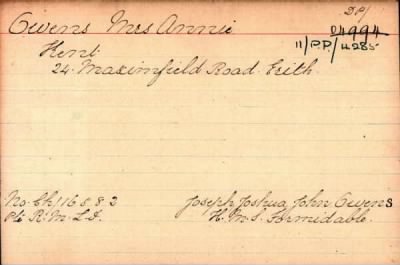 D.P/
Owens Mrs Annie
04994
11/P.P/4285
Kent
24. Maximfield Road. Erith.
No. Ch/16582 Joseph Joshua John Owens
Pte R.M.L.I. H.M.S. Formidable.